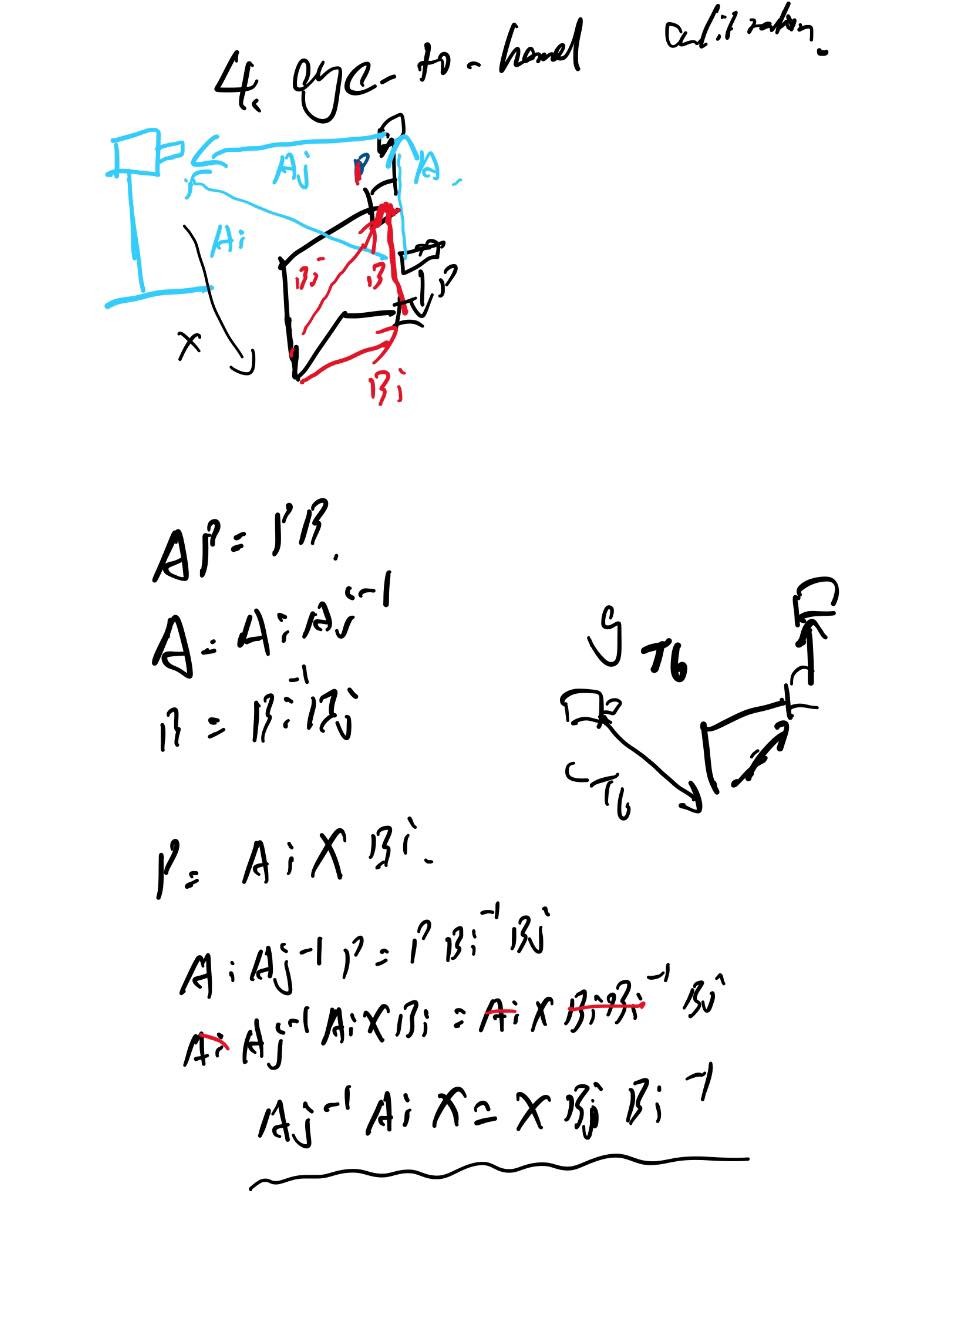 4. eye-to-hand calibration.
Aj
P
A
Ai
Bj
B
P
X
Bi
AP = PB.
A = Ai Aj⁻¹
B = Bi⁻¹ Bj
g T b
c T b
P = Ai X Bi.
Ai Aj⁻¹ P = P Bi⁻¹ Bj
Ai Aj⁻¹ Ai X Bi = Ai X Bi Bi⁻¹ Bj
Aj⁻¹ Ai X = X Bj Bi⁻¹